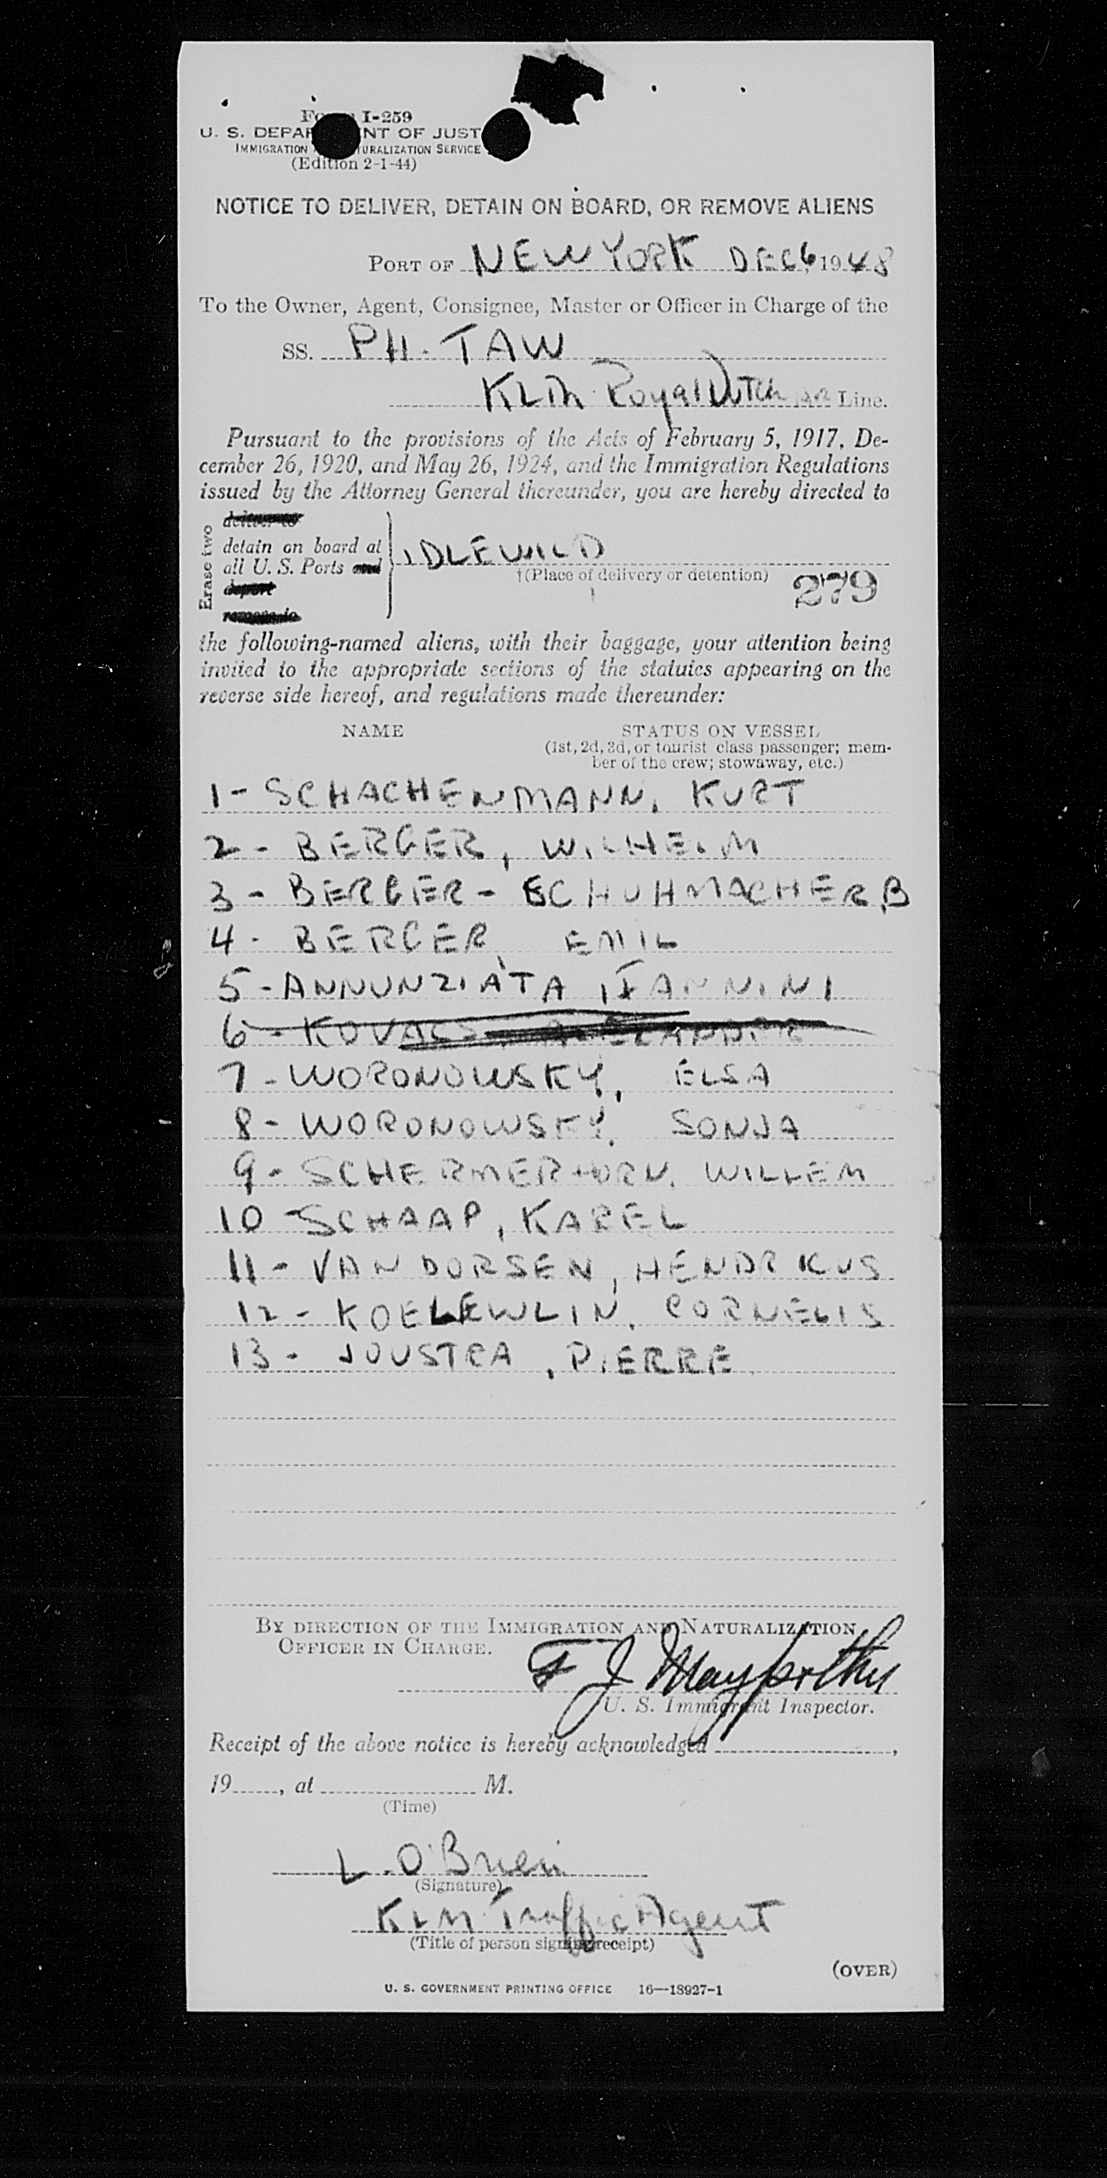 Form I-259
U. S. DEPARTMENT OF JUSTICE
IMMIGRATION NATURALIZATION SERVICE
(Edition 2-1-44)
NOTICE TO DELIVER, DETAIN ON BOARD, OR REMOVE ALIENS
PORT OF NEW YORK DEC 6, 1948
To the Owner, Agent, Consignee, Master or Officer in Charge of the
SS. PH. TAW
KLM Royal Dutch Air Line.
Pursuant to the provisions of the Acts of February 5, 1917, De-
cember 26, 1920, and May 26, 1924, and the Immigration Regulations
issued by the Attorney General thereunder, you are hereby directed to
Erase two
deliver to
detain on board at
all U. S. Ports and
deport
remove to
IDLEWILD
†(Place of delivery or detention)
279
the following-named aliens, with their baggage, your attention being
invited to the appropriate sections of the statutes appearing on the
reverse side hereof, and regulations made thereunder:
NAME STATUS ON VESSEL
(1st, 2d, 3d, or tourist class passenger; mem-
ber of the crew; stowaway, etc.)
1 - SCHACHENMANN, KURT
2 - BERGER, WILHELM
3 - BERGER - SCHUHMACHER, B
4 - BERGER, EMIL
5 - ANNUNZIATA, IANNINI
6 - KOVACS, ALEXANDER
7 - WORONOWSKY, ELSA
8 - WORONOWSKY, SONJA
9 - SCHERMERHORN, WILLEM
10 - SCHAAP, KAREL
11 - VAN DORSEN, HENDRIKUS
12 - KOELEWIJN, CORNELIS
13 - JOUSTRA, PIERRE
BY DIRECTION OF THE IMMIGRATION AND NATURALIZATION
OFFICER IN CHARGE.
F J
U. S. Immigrant Inspector.
Receipt of the above notice is hereby acknowledged ,
19 , at M.
(Time)
L. O'Brien
(Signature)
KLM Traffic Agent
(Title of person signing receipt)
(OVER)
U. S. GOVERNMENT PRINTING OFFICE 16—18927-1